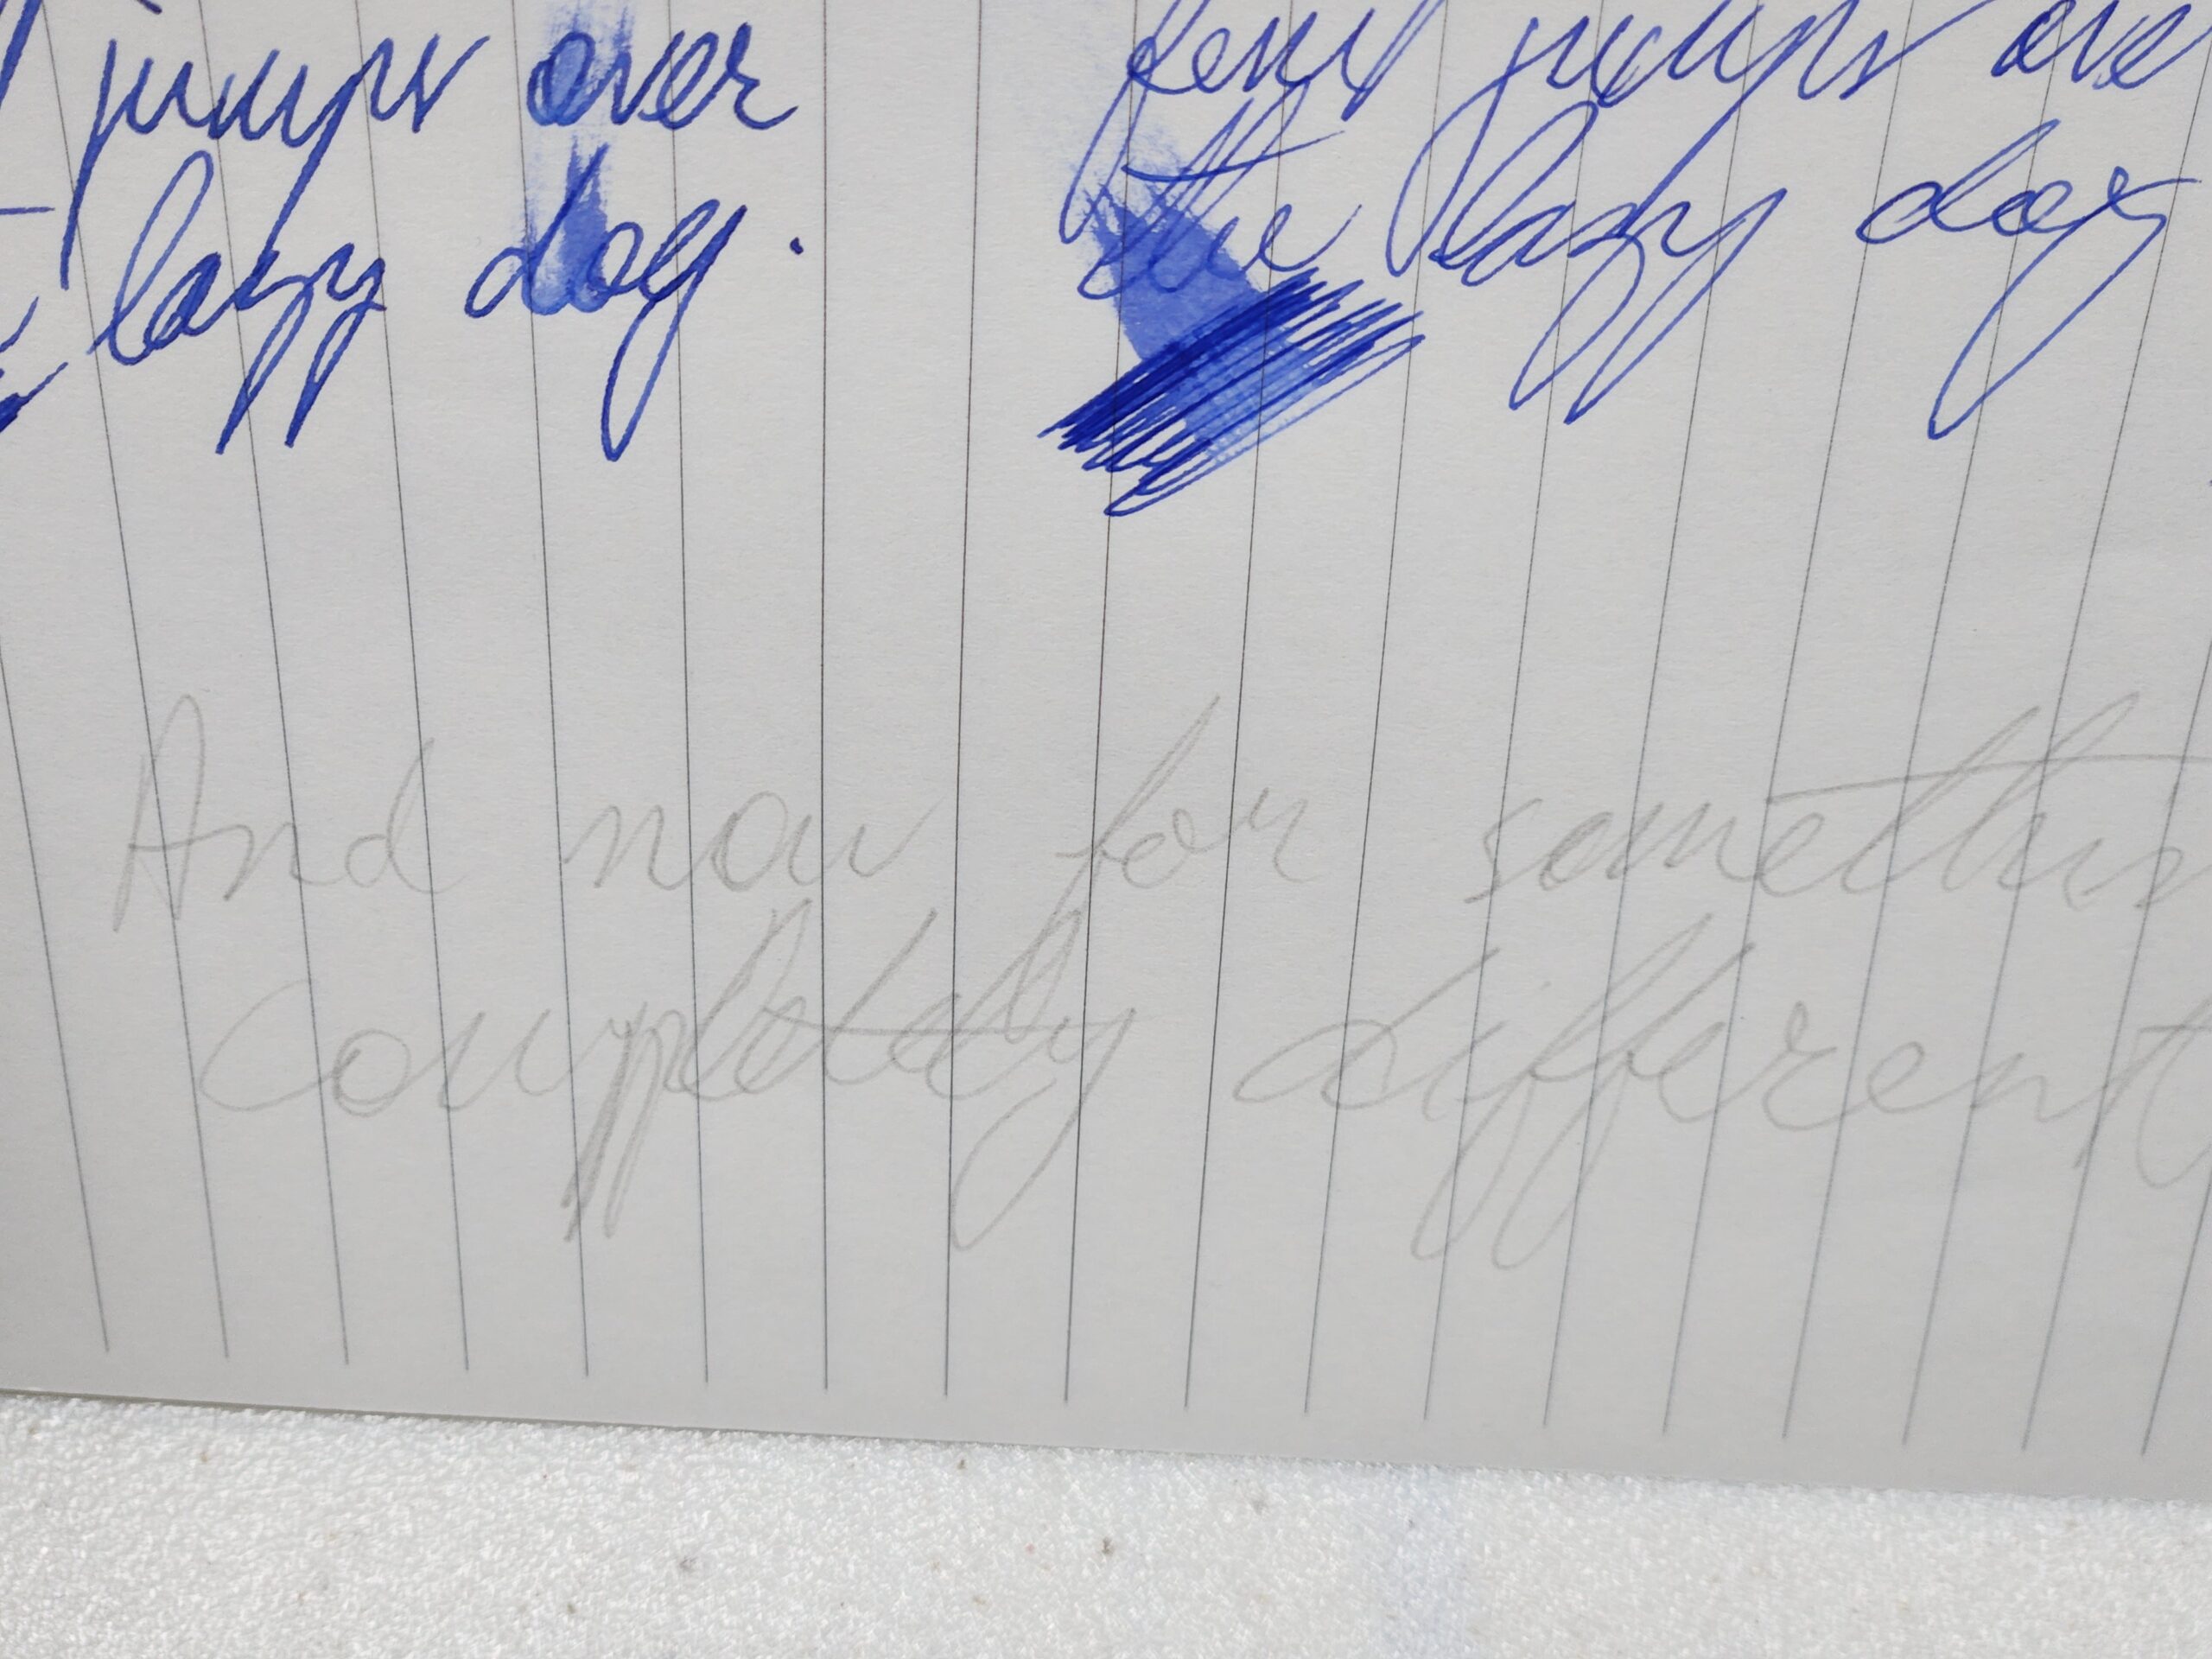 jumps over
lazy dog.
jumps ove
the lazy dog
And now for somethin
completely different